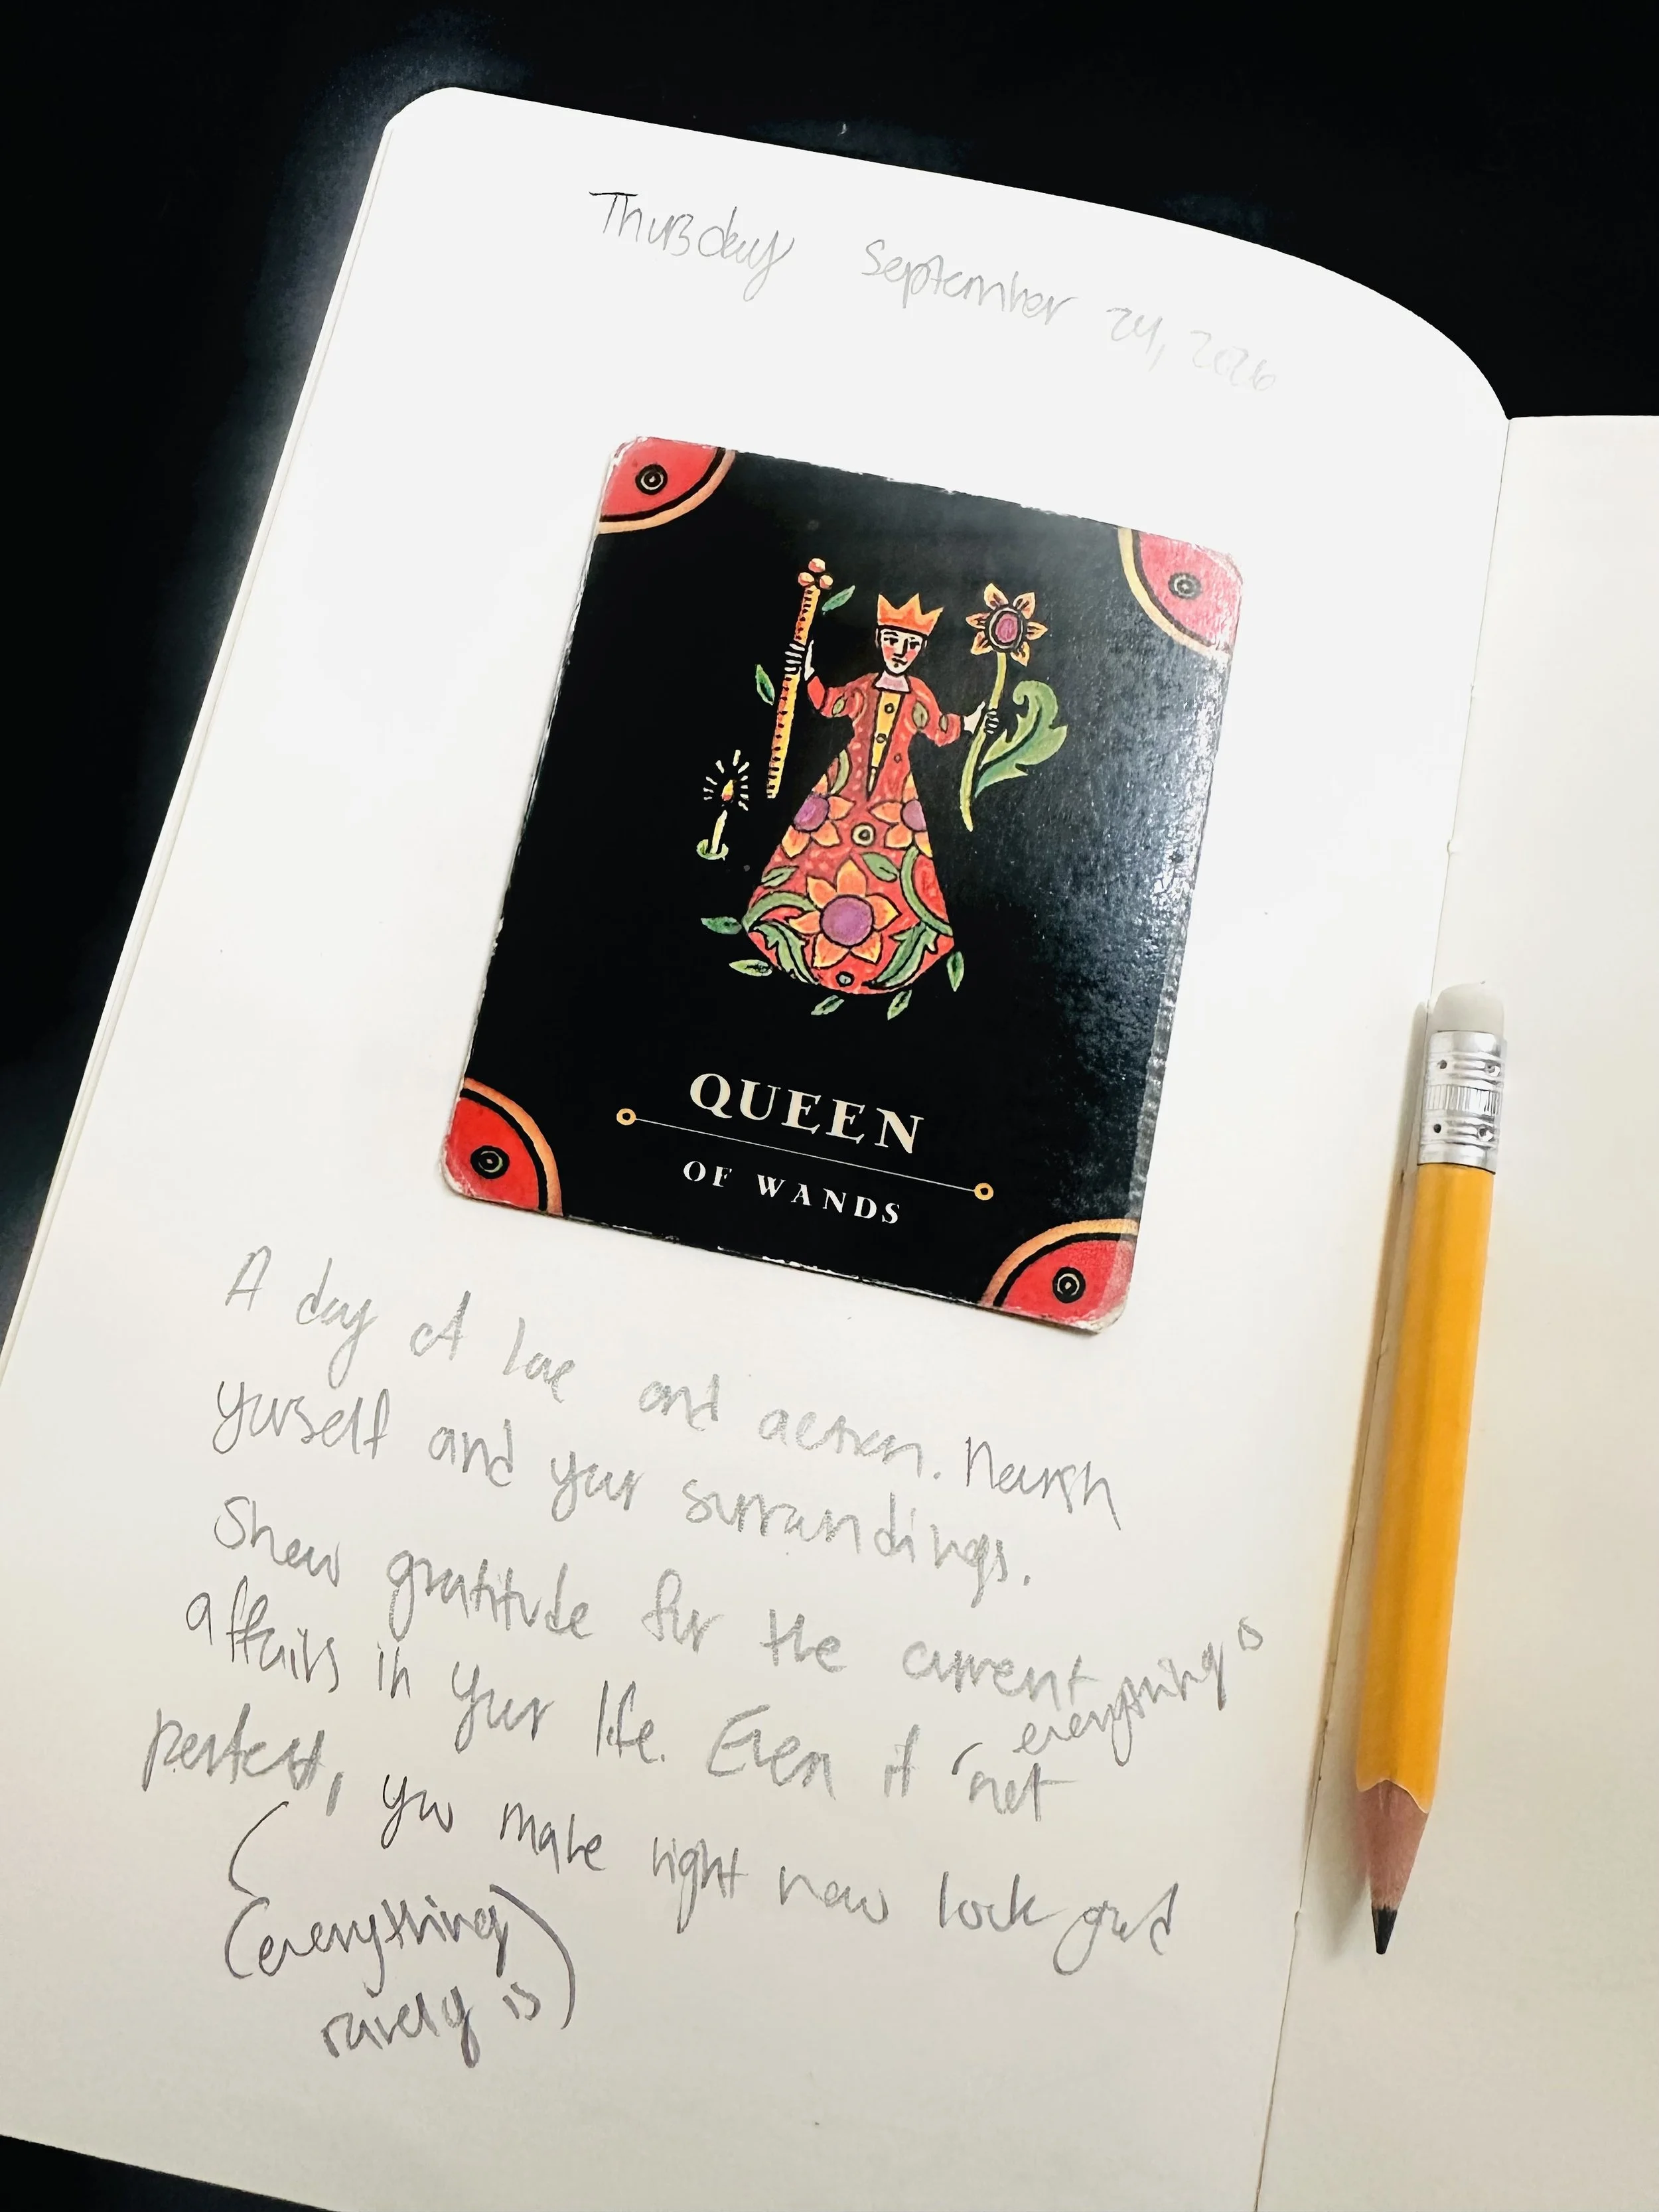 Thursday September 24, 2020
QUEEN
OF WANDS
A day of love and action. Nourish
yourself and your surroundings.
Show gratitude for the current
affairs in your life. Even if not everything is
perfect, you make right now look good
(everything
rarely is)